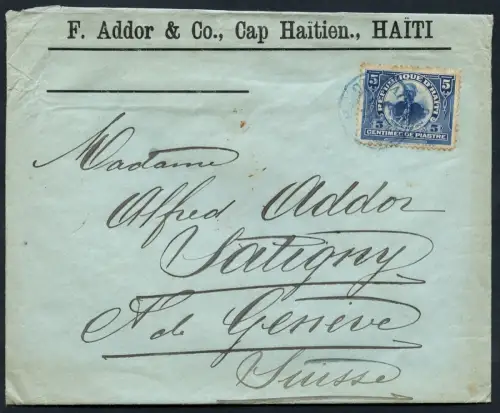 F. Addor & Co., Cap Haïtien., HAÏTI
5 5
REPUBLIQUE D'HAITI
5 5
CENTIMES DE PIASTRE
Madame
Alfred Addor
Satigny
de Genève
Suisse